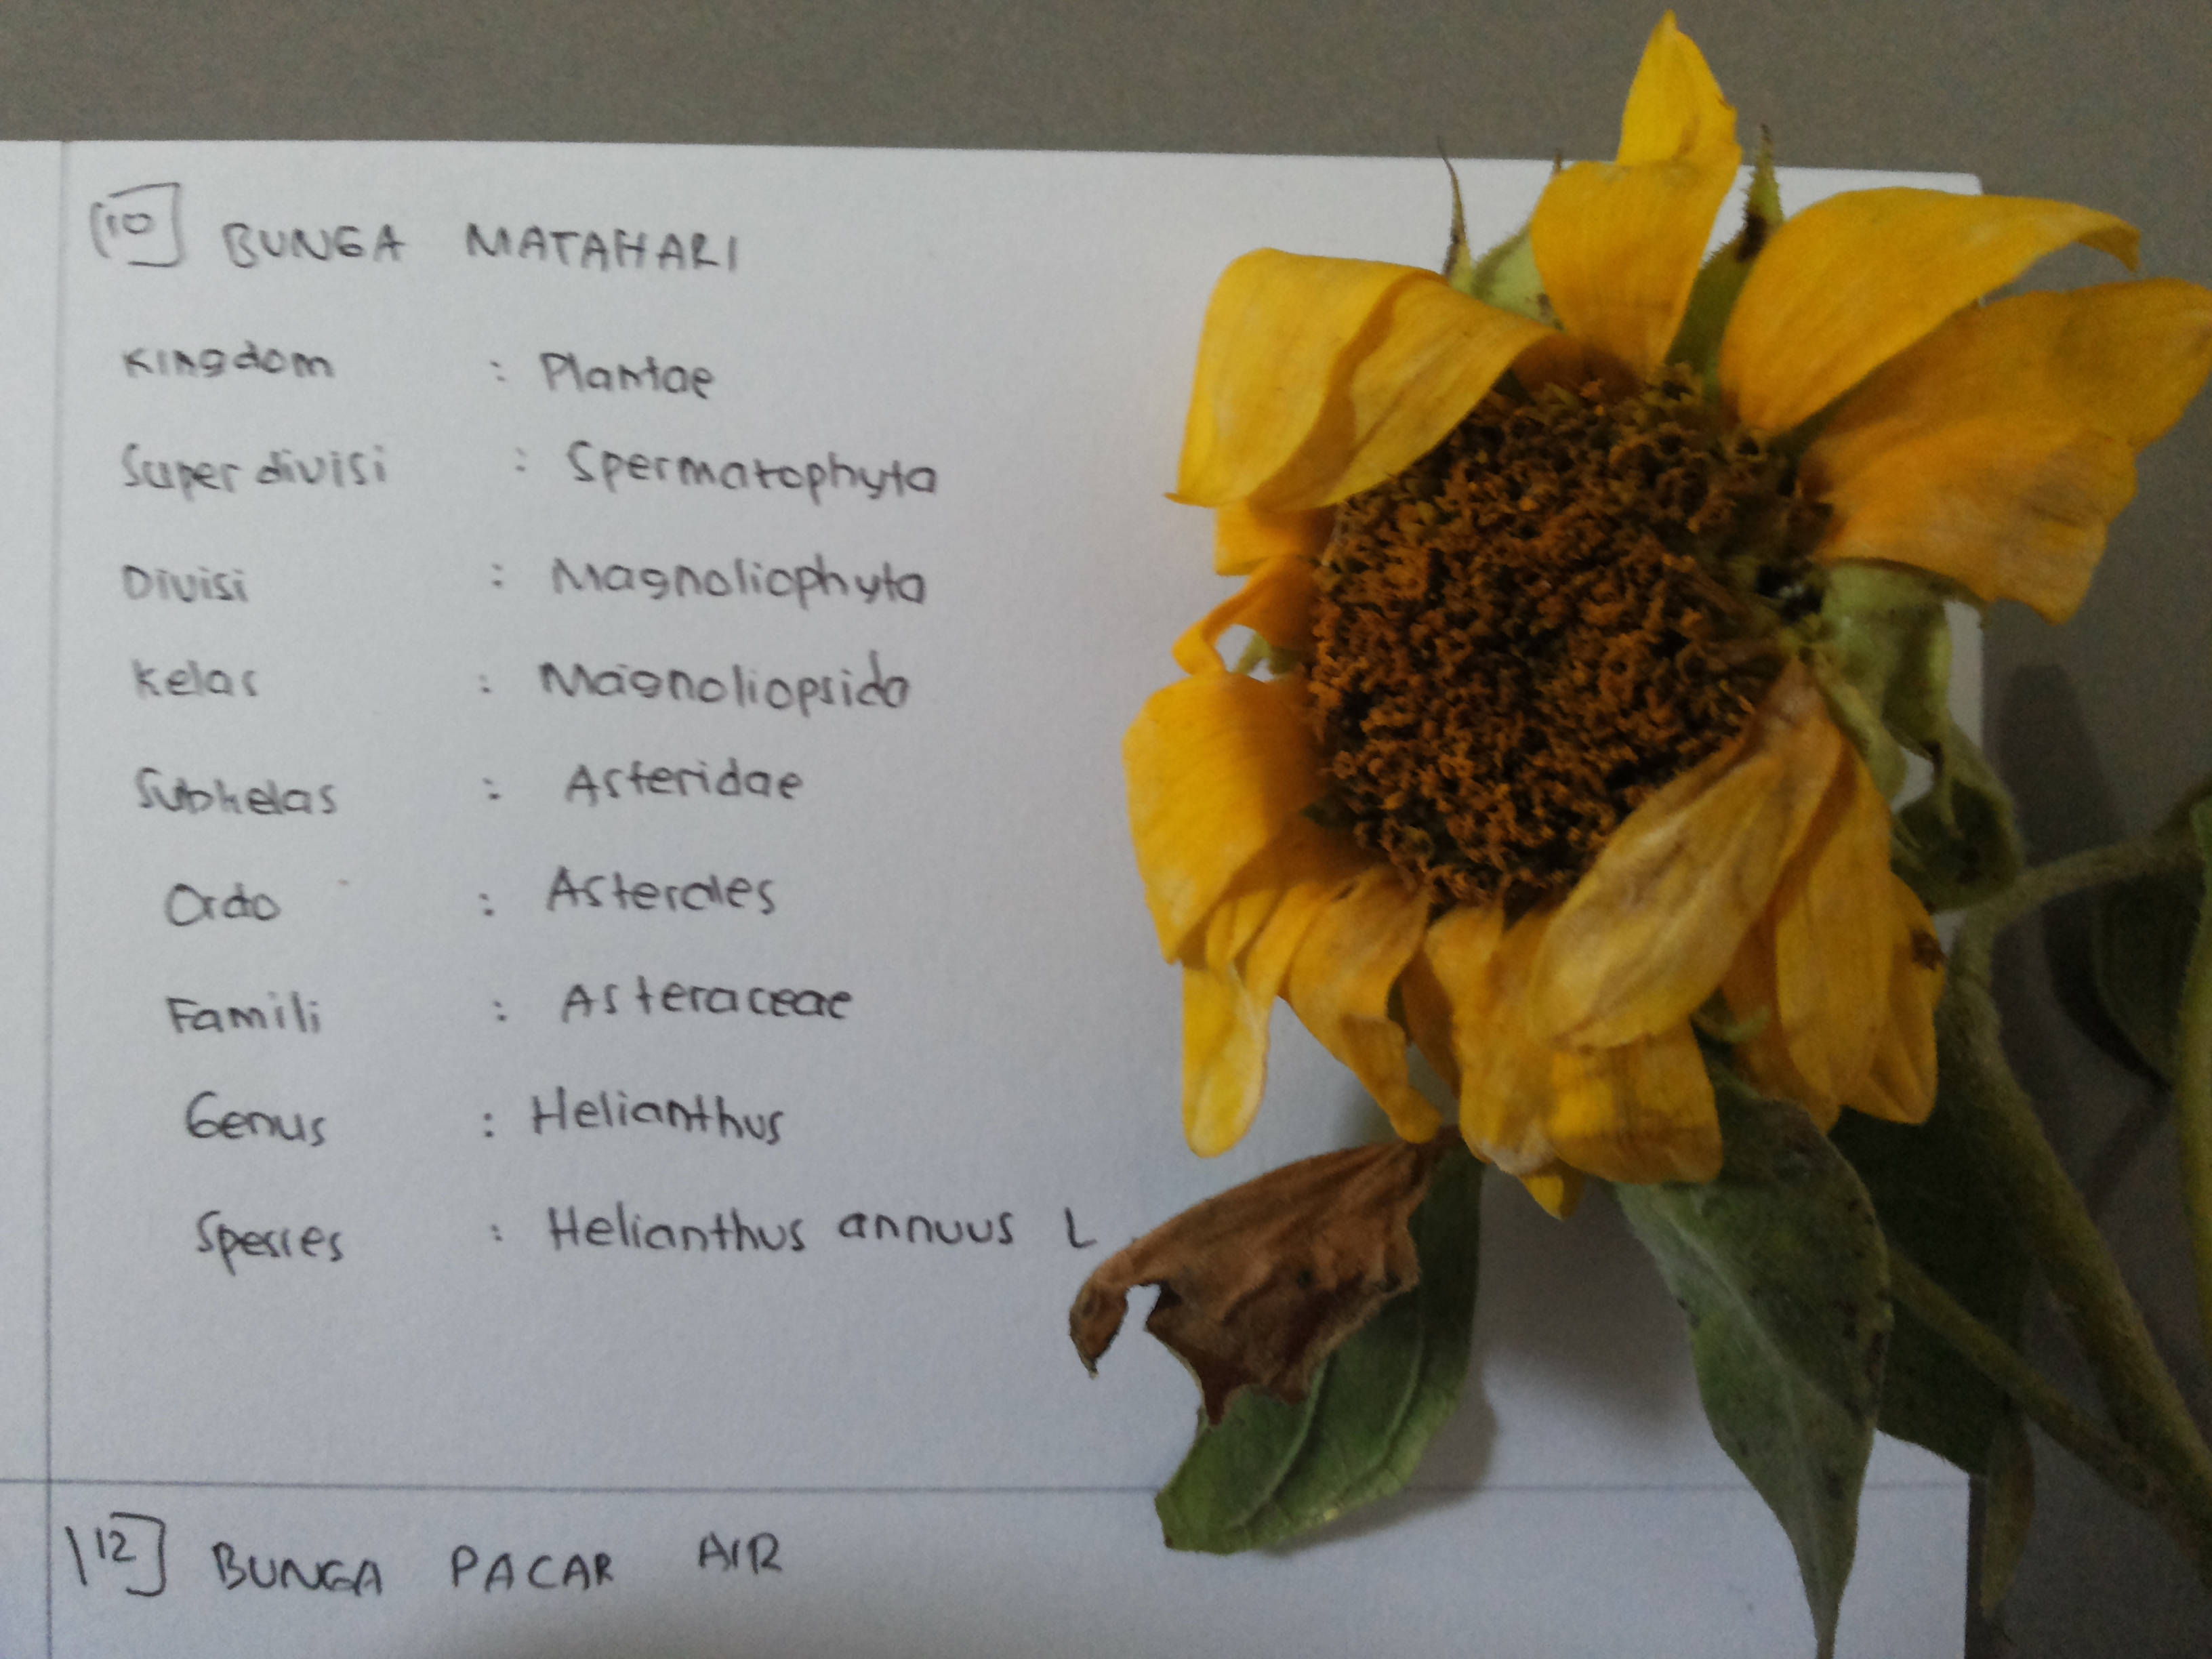 10 BUNGA MATAHARI
Kingdom : Plantae
Super divisi : Spermatophyta
Divisi : Magnoliophyta
Kelas : Magnoliopsida
Subkelas : Asteridae
Ordo : Asterales
Famili : Asteraceae
Genus : Helianthus
Spesies : Helianthus annuus L
12 BUNGA PACAR AIR